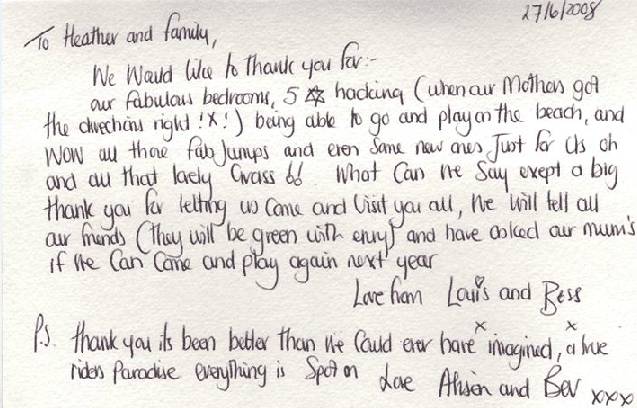 27/6/2008
To Heather and family,
We Would like to thank you for:-
our fabulous bedrooms, 5 ☆ hacking (when our Mothers got
the directions right !x!) being able to go and play on the beach, and
WOW all those fab Jumps and even some new ones Just for us oh
and all that lovely Grass 66 What Can we Say exept a big
thank you for letting us Come and Visit you all, We will tell all
our friends (they will be green with envy) and have asked our mum's
if we Can Come and play again next year
Love from Louis and Bess
x x
P.S. thank you its been better than we Could ever have imagined, a true
riders Paradise everything is Spot on Love Alison and Bev xxx